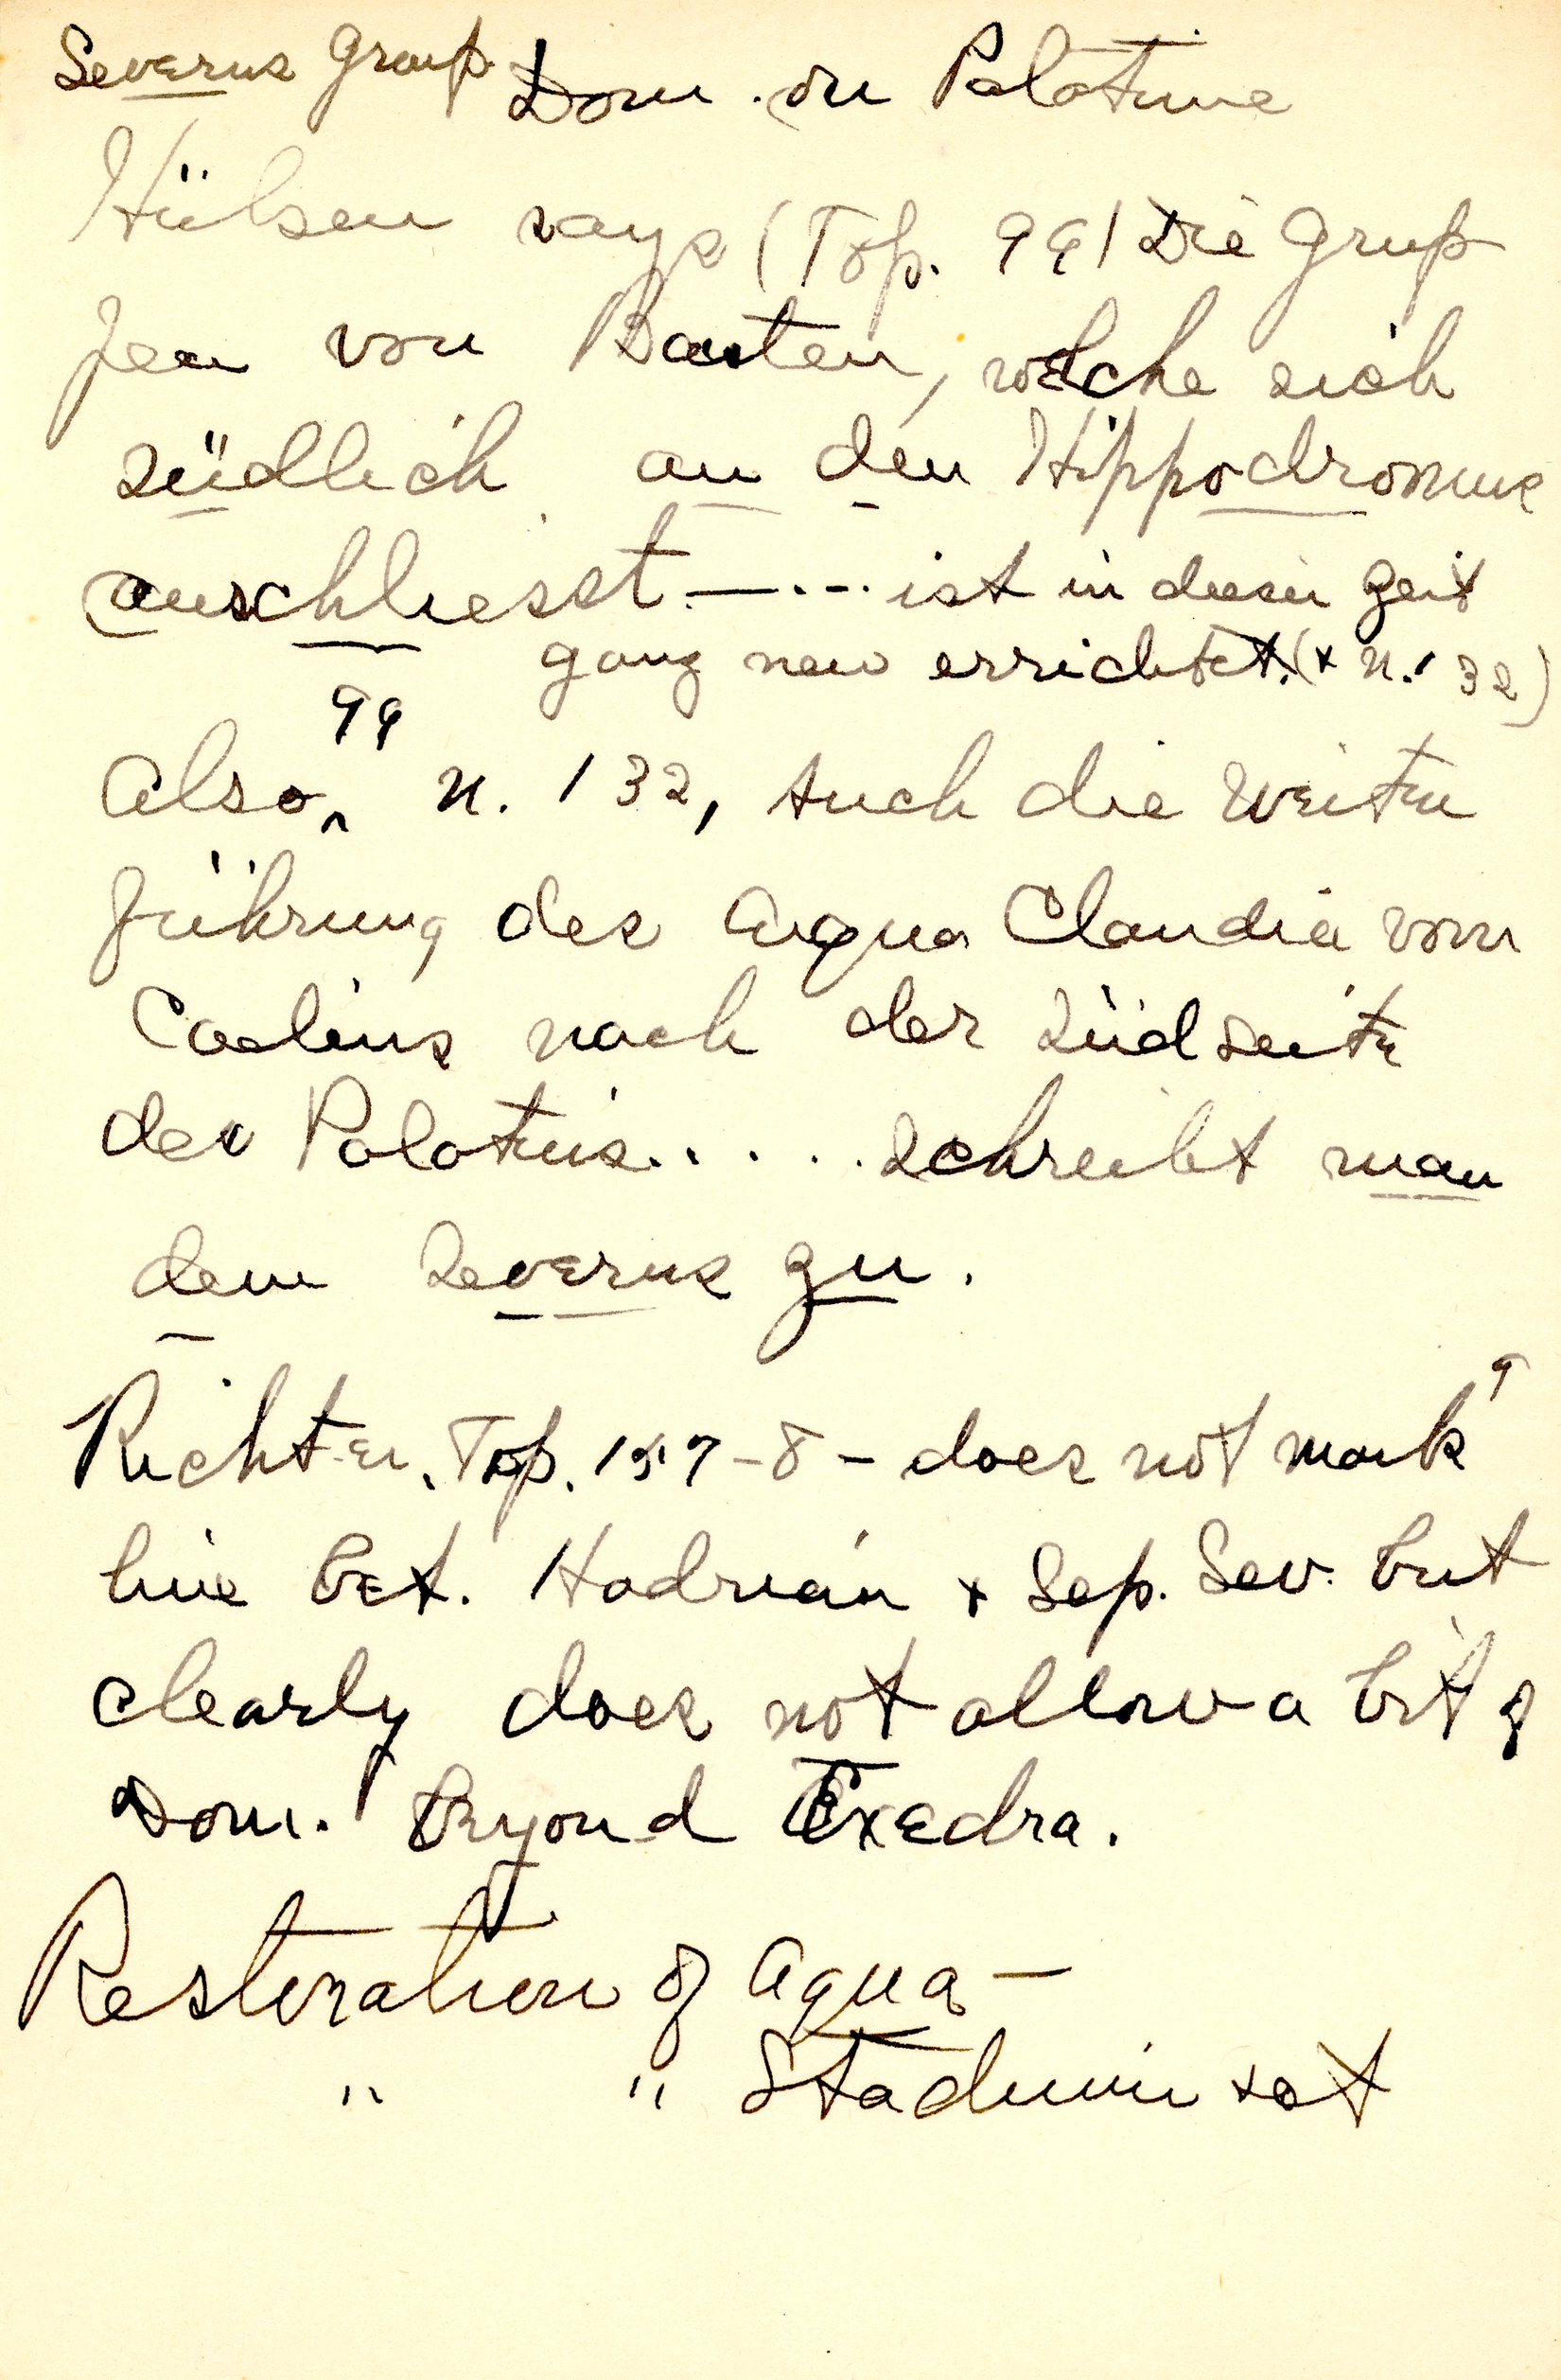 Severus Group Dom. on Palatine
Hülsen says (Top. 99) Die Grup
pen von Bauten, welche sich
südlich an den Hippodromus
anschliesst —... ist in dieser Zeit
ganz neu errichtet. (+ n. 132)
99
Also n. 132, Auch die Weiter
führung der Aqua Claudia vom
Caelius nach der Südseite
des Palatins..... schreibt man
dem Severus zu.
Richter, Top. 157-8 - does not mark
line bet. Hadrian + Sep. Sev. but
clearly does not allow a bit of
Dom. beyond Exedra.
Restoration of Aqua —
" " Stadium